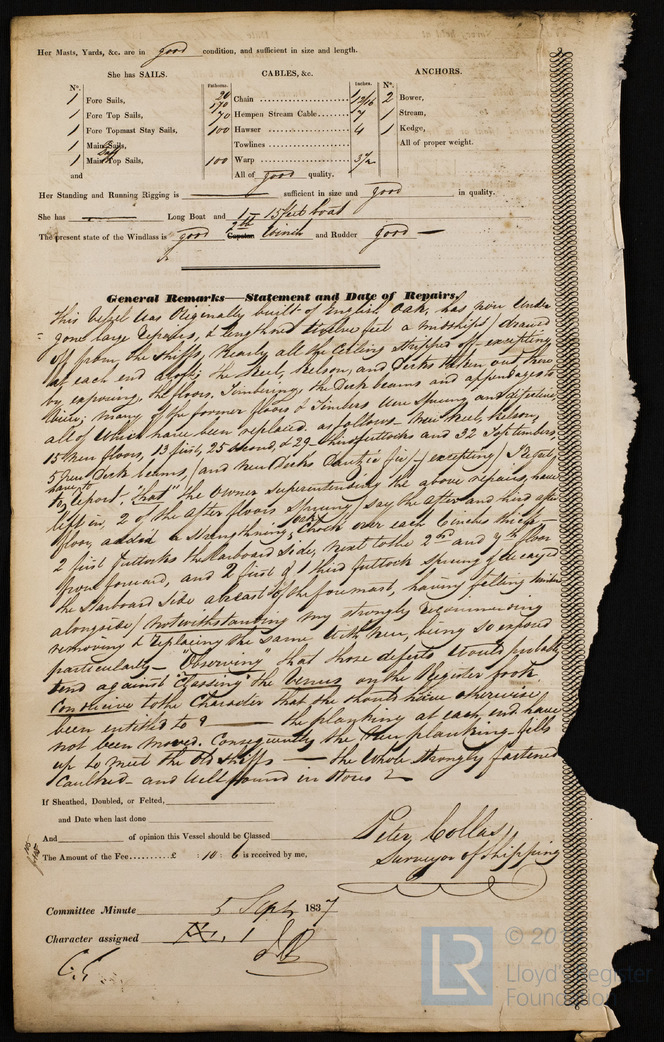 Her Masts, Yards, &c. are in good condition, and sufficient in size and length.
She has SAILS. CABLES, &c. ANCHORS.
N°. Fathoms. Inches. N°.
1 Fore Sails, 20 170 Chain 13/16 2 Bower,
1 Fore Top Sails, 70 Hempen Stream Cable 7 1 Stream,
1 Fore Topmast Stay Sails, 100 Hawser 4 1 Kedge,
1 Main Sails, Towlines All of proper weight.
1 Main Top Sails, 100 Warp 3½
and All of good quality.
Her Standing and Running Rigging is sufficient in size and good in quality.
She has Long Boat and 1 15 feet boat
The present state of the Windlass is good Capstan Winch and Rudder good
General Remarks—Statement and Date of Repairs.
This Vessel was Originally built of English Oak, has now under
gone large repairs, & lengthened twelve feet a midships, drawed
off from the shifts, Nearly all the Ceiling stripped off excepting
at each end aloft; the Keel, Kelson, and Decks taken out
by exposing the floors, Timbering, the Deck beams and appendages to
View; many of the former floors & Timbers were Sprung and defective
all of which have been replaced as follows New Keel, Kelson,
15 New floors, 13 first, 25 second, & 29 third futtocks and 32 Top timbers,
5 New Deck beams, and New Decks excepting
have to report, "that" the Owner Superintending the above repairs, have
left in, 2 of the after floors Sprung / say the After and third after
floor, added a strengthening Oak Chock over each 6 inches thick
2 first futtocks the larboard side, next to the 2nd and 4th floor
from forward, and 2 first & 1 third futtock Sprung & decayed
the Starboard Side abreast of the foremast, having filling timbers
alongside / notwithstanding my strongly recommending
removing & replacing the same with New, being so exposed
particularly "Observing" that those defects would probably
tend against "Classing" the Venus on the Register book
Conducive to the Character that she should have otherwise
been entitled to ? the planking at each end have
not been moved. Consequently the New planking fills
up to meet the Old shifts the Whole strongly fastened
Caulked and well found in stores
If Sheathed, Doubled, or Felted,
and Date when last done
And of opinion this Vessel should be Classed
The Amount of the Fee £ : 10 : 6 is received by me,
Peter Collas
Surveyor of Shipping
Committee Minute 5 Sept 1837
Character assigned 1
LR
© 20
Lloyd's Register
Foundation